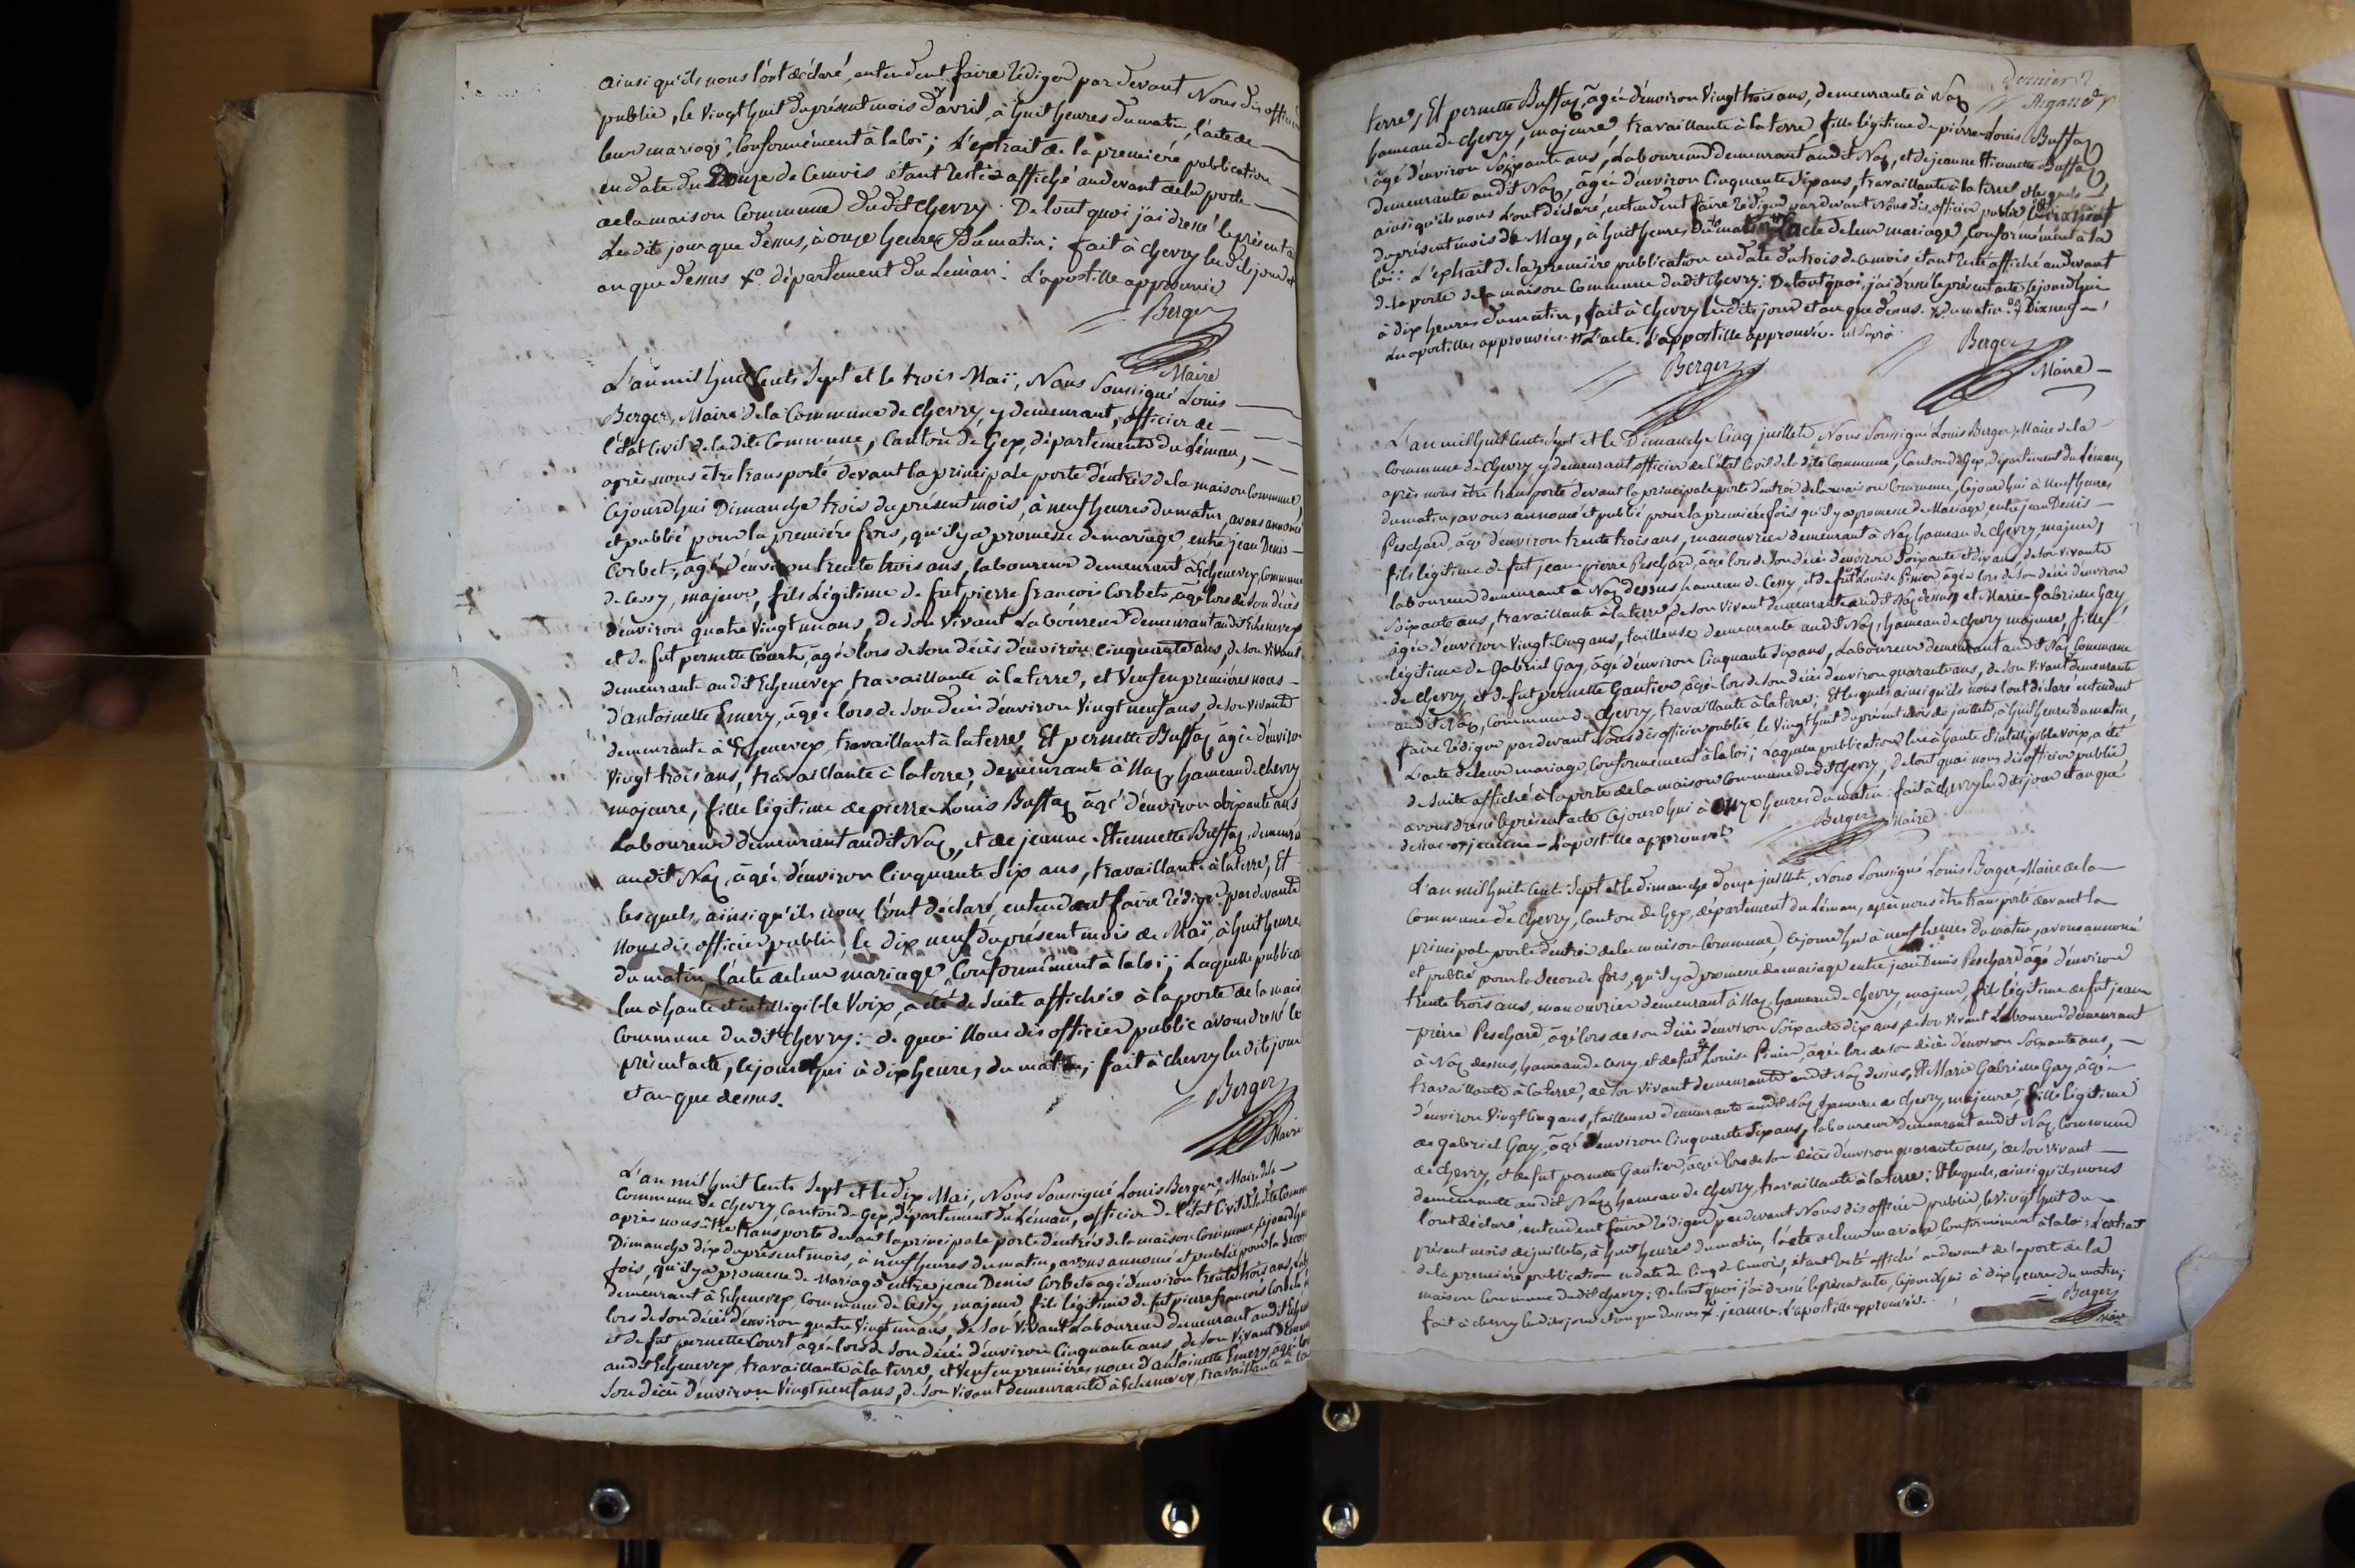 ainsi qu'ils nous l'ont déclaré, entendent faire rédiger par devant Nous dis officier
public, le Vingt huit du présent mois d'avril, à huit heures du matin, l'acte de
leur mariage, Conformément à la loi; L'extrait de la première publication
en date du Douze de Cemois étant resté affiché au devant de la porte
de la maison Commune dudit Chevry. De tout quoi j'ai dressé le présent a
Lesdits jour que dessus, à onze heures Du matin; fait à Chevry les dits jour et
an que dessus département du Léman. L'apostille approuvée
Berger
Maire
L'an mil huit Cents Sept et le trois Maï, Nous Soussigné Louis
Berger, Maire de la Commune de Chevry y demeurant, officier de
l'état Civil de la dite Commune, Canton de Gex, département du Léman,
après nous être transporté devant la principale porte d'entrée de la maison Commune,
Cejourd'hui Dimanche trois du présent mois, à neuf heures du matin, avons annoncé
et publié pour la première fois, qu'il y a promesse de mariage, entre jean Denis
Corbet, âgé d'environ trente trois ans, laboureur demeurant à Echenevex, Commune
de Cessy, majeur, fils Légitime de fut pierre françois Corbet, âgé lors de son décès
d'environ quatre Vingt un ans, de son Vivant Laboureur demeurant audit Echenevex
et de fut pernette Court, âgée lors de son décès d'environ cinquante ans, de son Vivant
demeurante audit Echenevex, travaillante à la terre, et Veuf en premières noces
d'antoinette Emery, âgée lors de son décès d'environ Vingt neuf ans, de son Vivant
demeurante à Echenevex, travaillant à la terre, Et pernette Buffaz, âgée d'enviro
Vingt trois ans, travaillante à la terre, demeurante à Naz, hameau de Chevry
majeure, fille légitime de pierre Louis Buffaz âgé d'environ soixante ans
Laboureur demeurant audit Naz, et de jeanne Etiennette Buffaz, demeura
audit Naz, âgée d'environ Cinquante Six ans, travaillante à la terre, Et
lesquels, ainsi qu'ils nous l'ont déclaré, entendent faire rédiger par devant
Nous dis officier public, le dix neuf du présent mois de Maï, à huit heures
du matin, l'acte de leur mariage Conformément à la loi; Laquelle publica
lue à haute et intelligible Voix, a été de Suite affichée à la porte de la mais
Commune dudit Chevry: de quoi Nous dis officier public avons dressé le
présent acte, Cejourd'hui à dix heures, du matin; fait à Chevry les dits jour
et an que dessus.
Berger
Maire
L'an mil huit Cents Sept et le dix Mai, Nous Soussigné Louis Berger, Maire de la
Commune de Chevry Canton de Gex, département du Léman, officier de l'état Civil de la dite Comm
après nous être transporté devant la principale porte d'entrée de la maison Commune, Cejourd'hu
Dimanche dix du présent mois, à neuf heures du matin, avons annoncé et publié pour la Secon
fois, qu'il y a promesse de Mariage entre jean Denis Corbet âgé d'environ trente trois ans, Lab
demeurant à Echenevex, Commune de Cessy, majeur, fils légitime de fut pierre françois Corbet
lors de son décès d'environ quatre Vingt un ans, de son Vivant Laboureur demeurant audit Eche
et de fut pernette Court, âgée lors de son décès d'environ Cinquante ans, de son Vivant demeu
audit Echenevex, travaillante à la terre, et Veuf en premières noces d'antoinette Emery, âgée lor
Son décès d'environ Vingt neuf ans, de son Vivant demeurante à Echenevex, travaillante à la
terre, Et pernette Buffaz, âgée d'environ Vingt trois ans, demeurante à Naz
hameau de Chevry, majeure, travaillante à la terre, fille légitime de pierre Louis Buffaz
âgé d'environ Soixante ans, Laboureur demeurant audit Naz, et de jeanne Etiennette Buffaz
demeurante audit Naz, âgée d'environ Cinquante Six ans, travaillante à la terre, Lesquels
ainsi qu'ils nous l'ont déclaré, entendent faire rédiger par devant Nous dis officier public
du présent mois de May, à huit heures du matin l'acte de leur mariage, Conformément à la
loi: L'extrait de la première publication en date du trois de Cemois étant resté affiché au devant
de la porte de la maison Commune dudit Chevry; De tout quoi, j'ai dressé le présent acte Cejourd'hui
à dix heures du matin, fait à Chevry les dits jour et an que dessus. du matin. Dix neuf
Les apostilles approuvées. L'acte. L'appostille approuvée.
Berger
Berger
Maire
L'an mil huit Cents Sept et le Dimanche Cinq juillet, Nous Soussigné Louis Berger, Maire de la
Commune de Chevry y demeurant officier de l'état Civil de la dite Commune, Canton de Gex, département du Léman,
après nous être transporté devant la principale porte d'entrée de la maison Commune, Cejourd'hui à Neuf heures
du matin, avons annoncé et publié pour la première fois qu'il y a promesse de Mariage, entre jean Denis
Peschard, âgé d'environ trente trois ans, manouvrier demeurant à Naz hameau de Chevry, majeur,
fils légitime de fut jean pierre Peschard, âgé lors de son décès d'environ Soixante et dix ans, de son Vivant
laboureur demeurant à Naz dessus hameau de Cessy, et de fut Louise Pinier, âgée lors de son décès d'environ
Soixante ans, travaillante à la terre, de son Vivant demeurante audit Naz dessus, et Marie Gabrielle Gay,
âgée d'environ Vingt Cinq ans, tailleuse demeurante audit Naz, hameau de Chevry majeure, fille
légitime de Gabriel Gay, âgé d'environ Cinquante Six ans, Laboureur demeurant audit Naz Commune
de Chevry, et de fut pernette Gautier, âgée lors de son décès d'environ quarante ans, de son Vivant demeurante
audit Naz, Commune de Chevry, travaillante à la terre; Et lesquels, ainsi qu'ils nous l'ont déclaré entendent
faire rédiger par devant Nous dis officier public, le Vingt huit du présent mois de juillet, à huit heures du matin,
L'acte de leur mariage, Conformément à la loi; Laquelle publication lue à haute et intelligible Voix, a été
de Suite affiché à la porte de la maison Commune dudit Chevry; de tout quoi nous dis officier public
avons dressé le présent acte Cejourd'hui à Onze heures du matin: fait à Chevry les dits jour et an que
dessus jeanne. L'apostille approuvée
Berger Maire
L'an mil huit Cent Sept et le dimanche douze juillet, Nous Soussigné Louis Berger Maire de la
Commune de Chevry, Canton de Gex, département du Léman, après nous être transporté devant la
principale porte d'entrée de la maison Commune, Cejourd'hui à neuf heures du matin, avons annoncé
et publié pour la Seconde fois, qu'il y a promesse de mariage entre jean Denis Peschard âgé d'environ
trente trois ans, manouvrier demeurant à Naz, hameau de Chevry, majeur, fils légitime de fut jean
pierre Peschard, âgé lors de son décès d'environ Soixante dix ans, de son Vivant Laboureur demeurant
à Naz dessus, hameau de Cessy, et de fut Louise Pinier, âgée lors de son décès d'environ Soixante ans,
travaillante à la terre, de son Vivant demeurante audit Naz dessus, Et Marie Gabrielle Gay, âgée
d'environ Vingt Cinq ans, tailleuse demeurante audit Naz, hameau de Chevry, majeure, fille légitime
de gabriel Gay, âgé d'environ Cinquante Six ans, laboureur demeurant audit Naz, Commune
de Chevry, et de fut pernette Gautier, âgée lors de son décès d'environ quarante ans, de son Vivant
demeurante audit Naz hameau de Chevry, travaillante à la terre; Et lesquels, ainsi qu'ils nous
l'ont déclaré, entendent faire rédiger par devant Nous dis officier public, le Vingt huit du
présent mois de juillet, à huit heures du matin, l'acte de leur mariage, Conformément à la loi; L'extrait
de la première publication en date du Cinq de Cemois, étant resté affiché au devant de la porte de la
maison Commune dudit Chevry: De tout quoi j'ai dressé le présent acte, Cejourd'hui à dix heures du matin;
fait à Chevry les dits jour et an que dessus jeanne. L'apostille approuvée.
Berger
Maire